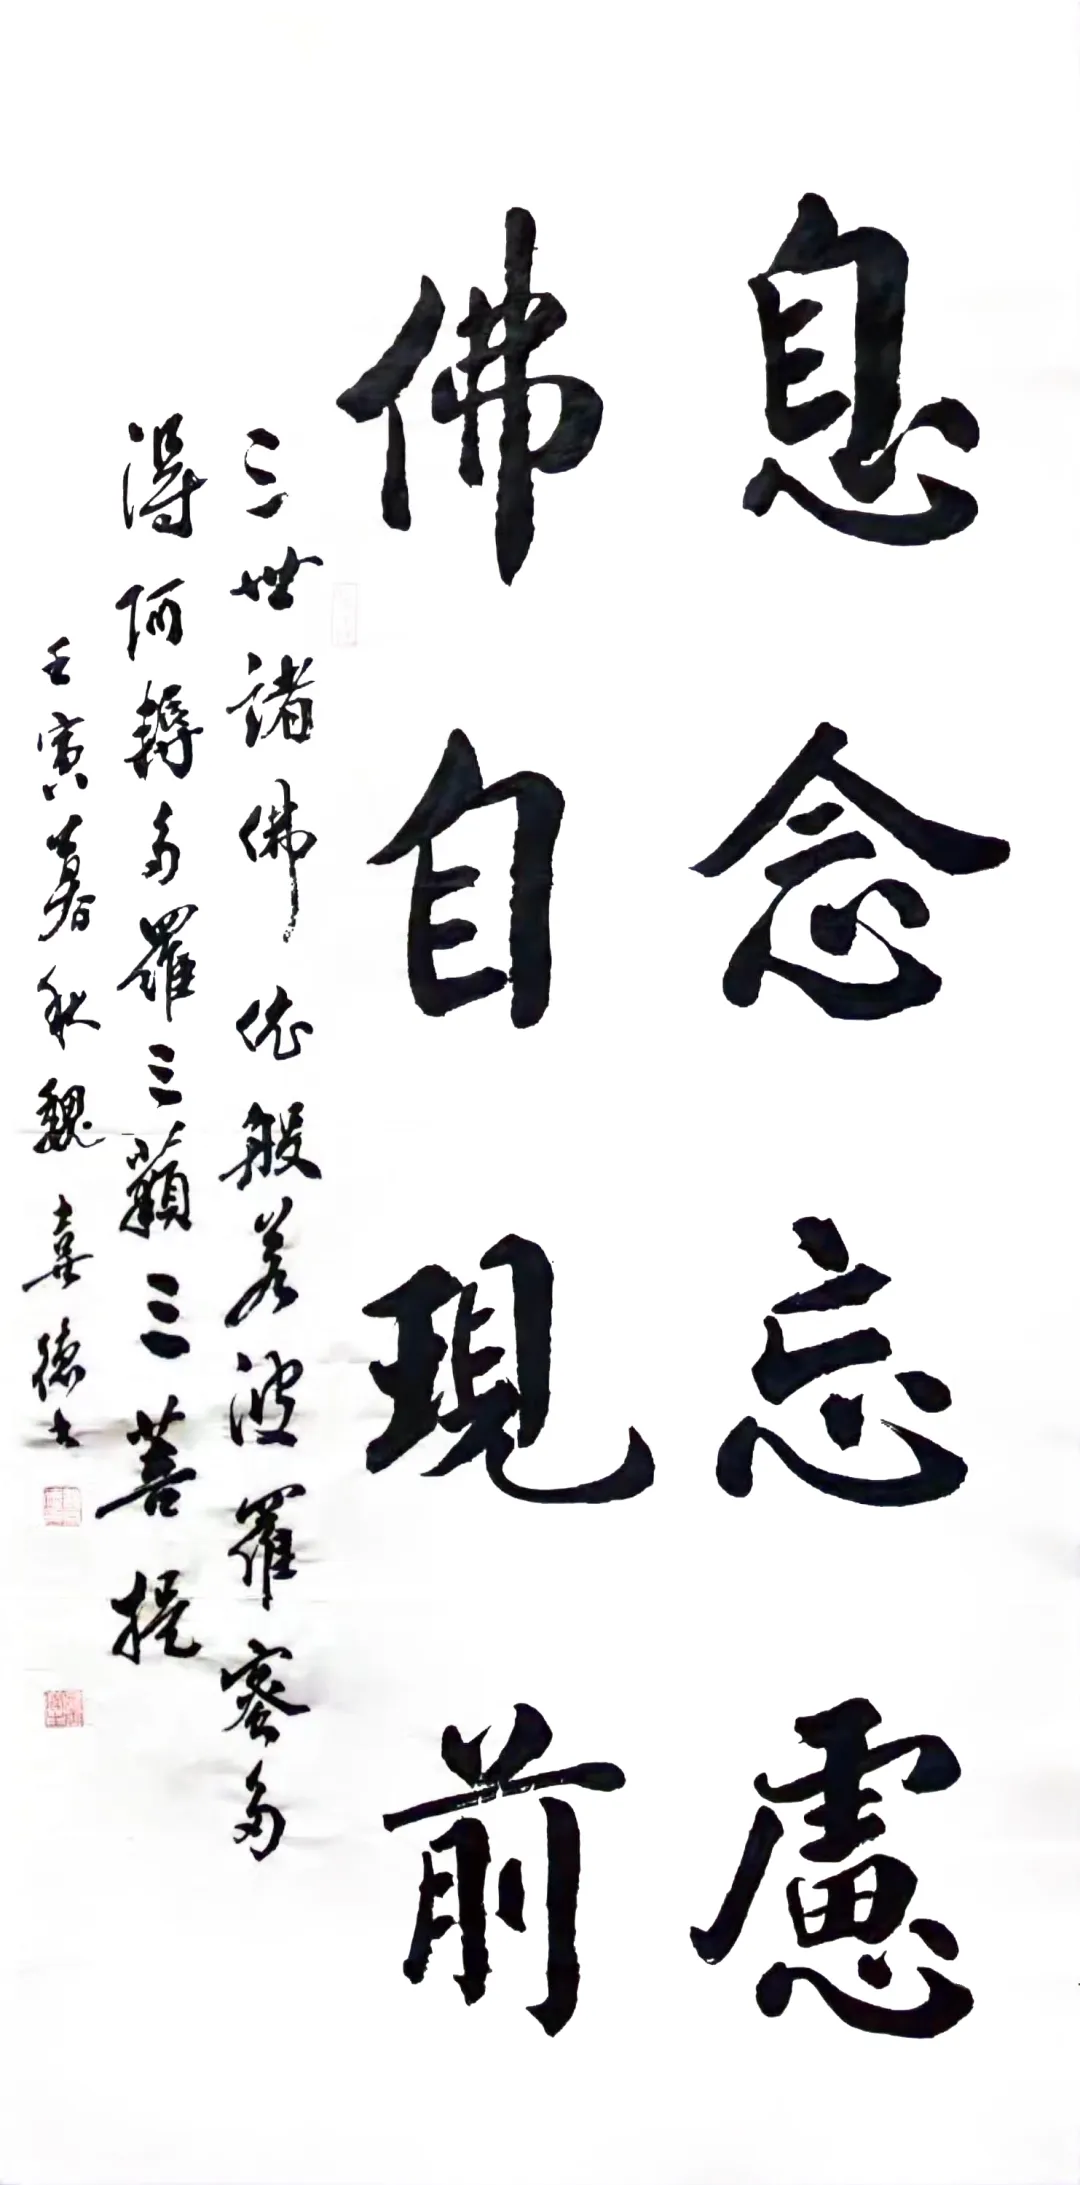 息念忘慮
佛自現前
三世諸佛依般若波羅蜜多
得阿耨多羅三藐三菩提
壬寅暮秋魏喜德書